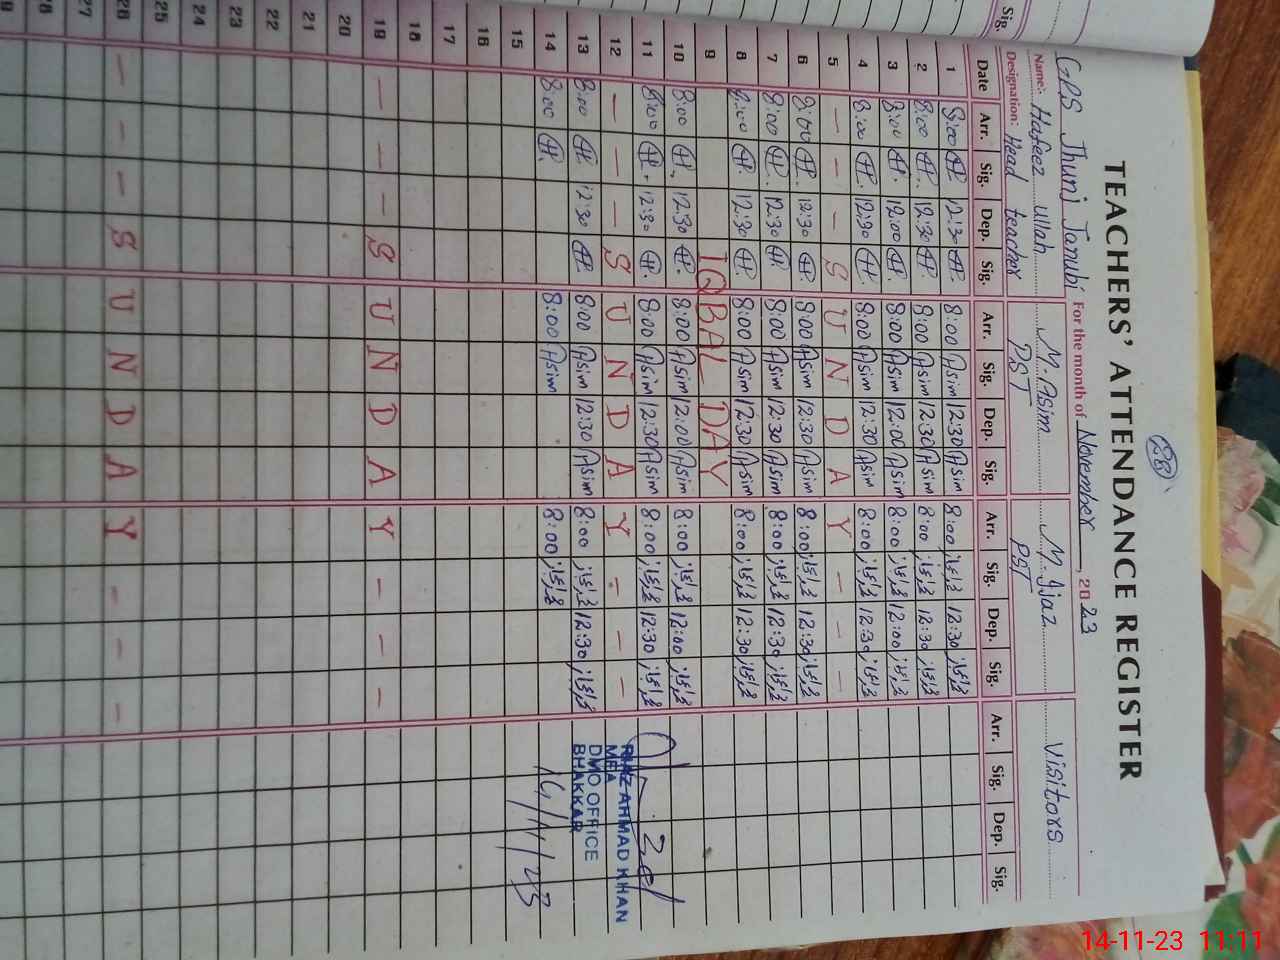 28
TEACHERS' ATTENDANCE REGISTER
GPS Jhunj Janubi For the month of November, 2023
Name:- Hafeez ullah M. Asim M. Ijaz Visitors
Designation: Head teacher PST PST
Sig.
Date Arr. Sig. Dep. Sig. Arr. Sig. Dep. Sig. Arr. Sig. Dep. Sig. Arr. Sig. Dep. Sig.
1 8:00 12:30 8:00 Asim 12:30 Asim 8:00 اعجاز 12:30 اعجاز
2 8:00 12:30 8:00 Asim 12:30 Asim 8:00 اعجاز 12:30 اعجاز
3 8:00 12:00 8:00 Asim 12:00 Asim 8:00 اعجاز 12:00 اعجاز
4 8:00 12:30 8:00 Asim 12:30 Asim 8:00 اعجاز 12:30 اعجاز
5 — — — S U N D A Y — — —
6 8:00 12:30 8:00 Asim 12:30 Asim 8:00 اعجاز 12:30 اعجاز
7 8:00 12:30 8:00 Asim 12:30 Asim 8:00 اعجاز 12:30 اعجاز
8 8:00 12:30 8:00 Asim 12:30 Asim 8:00 اعجاز 12:30 اعجاز
9 IQBAL DAY
10 8:00 12:30 8:00 Asim 12:00 Asim 8:00 اعجاز 12:00 اعجاز
11 8:00 12:30 8:00 Asim 12:30 Asim 8:00 اعجاز 12:30 اعجاز
12 — — — S U N D A Y — — —
13 8:00 12:30 8:00 Asim 12:30 Asim 8:00 اعجاز 12:30 اعجاز
14 8:00 8:00 Asim 8:00 اعجاز
15
16
17
18
19 — — — S U N D A Y — — —
20
21
22
23
24
25
26 — — — S U N D A Y — — —
27
28
RIAZ AHMAD KHAN
MEA
DMO OFFICE
BHAKKAR
14/11/23
14-11-23 11:11